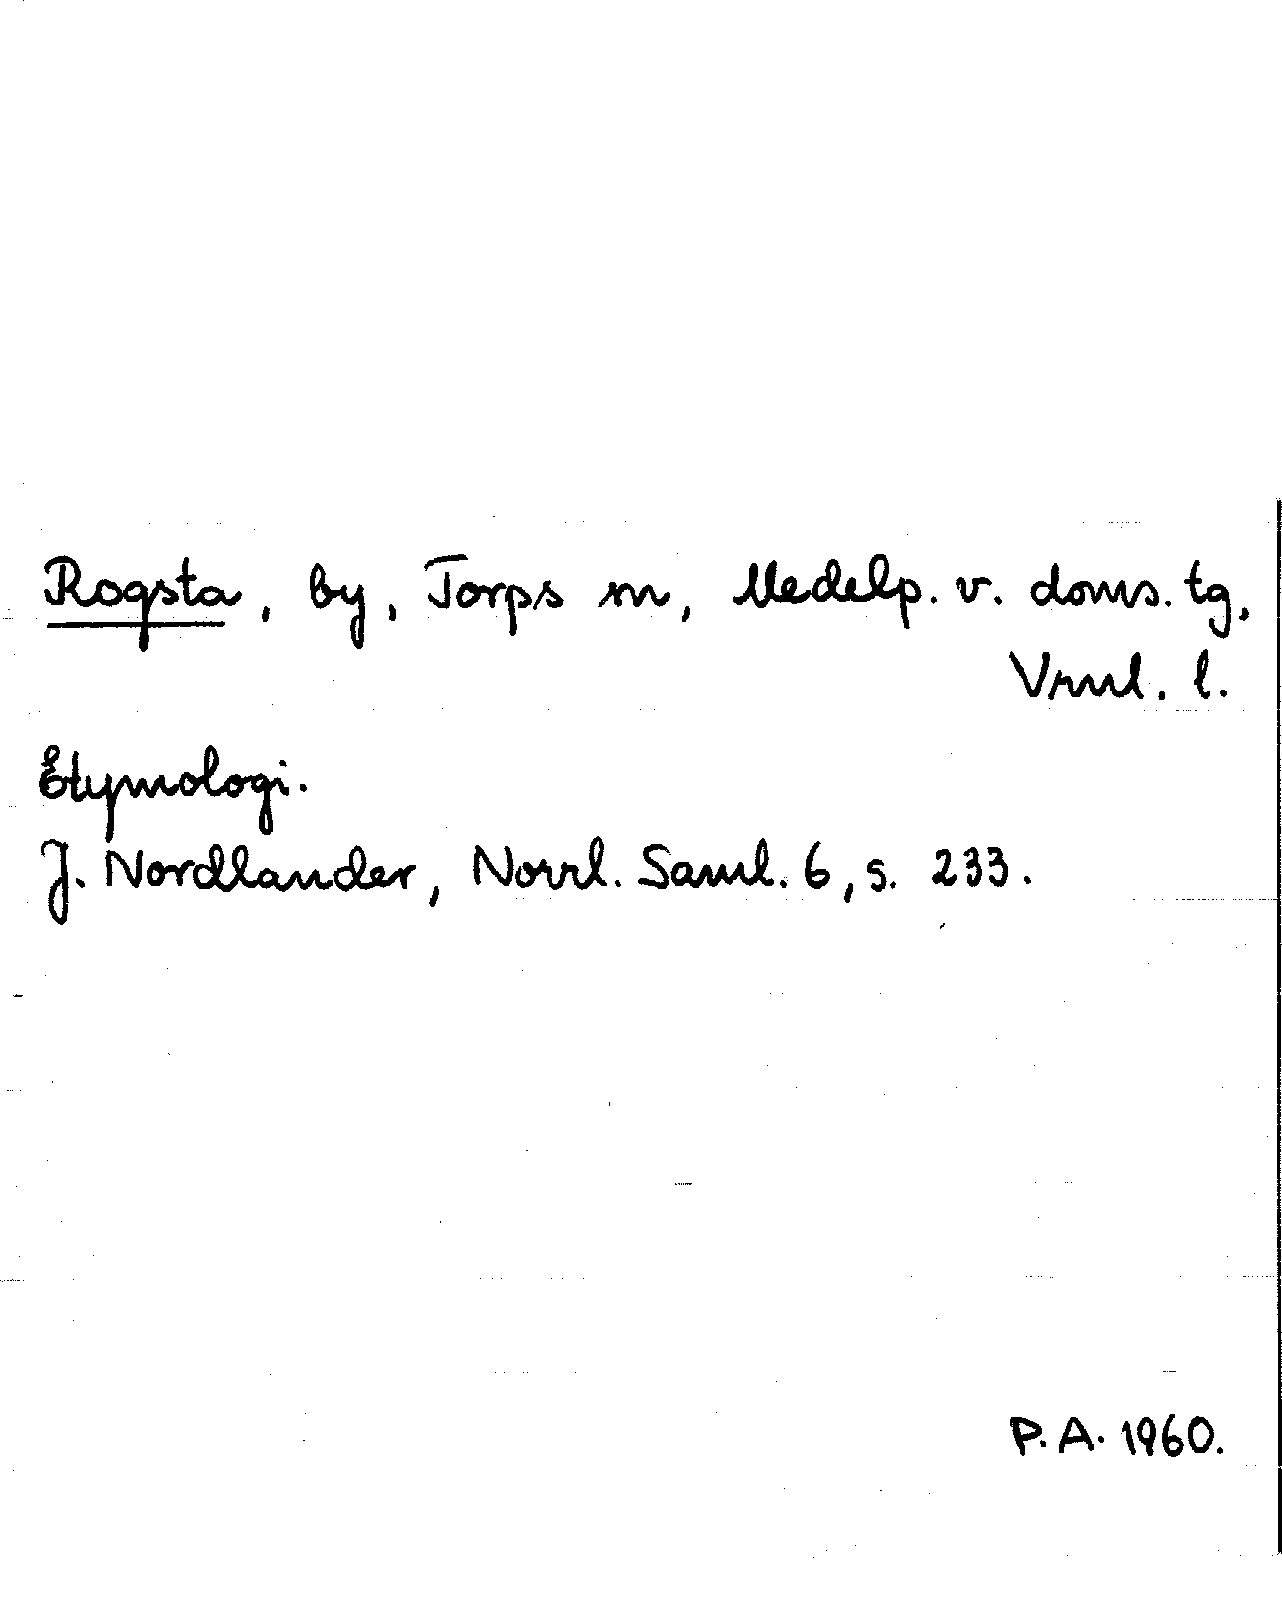 Rogsta, by, Torps sn, Medelp. v. doms. tg,
Vrnl. l.
Etymologi.
J. Nordlander, Norrl. Saml. 6, s. 233.
P. A. 1960.